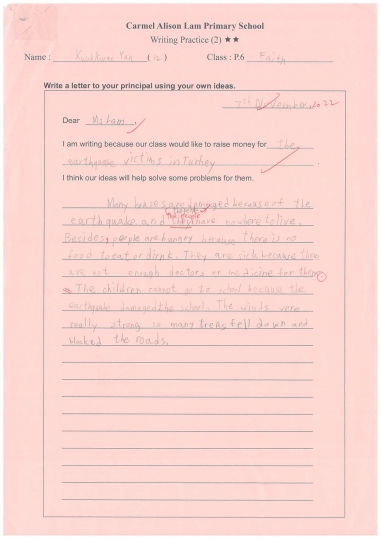 Carmel Alison Lam Primary School
Writing Practice (2) ★★
Name : Kwok Kwan Yan ( 12 ) Class : P.6 Faith
Write a letter to your principal using your own ideas.
7th November 2022
Dear Ms Lam ,
I am writing because our class would like to raise money for the
earthquake victims in Turkey .
I think our ideas will help solve some problems for them.
Many houses are damaged because of the
the people
earthquake and they have nowhere to live.
Besides, people are hungry because there is no
food to eat or drink. They are sick because there
are not enough doctors or medicine for them.
The children cannot go to school because the
earthquake damaged the school. The winds were
really strong so many trees fell down and
blocked the roads.